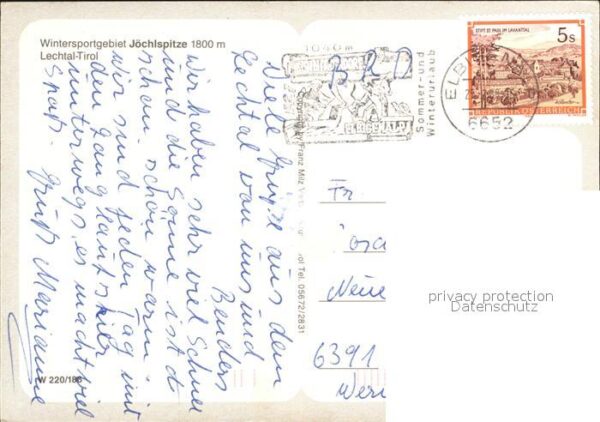 Wintersportgebiet Jöchlspitze 1800 m
Lechtal-Tirol
Viele Grüße aus dem
Lechtal von uns und
Benders
Wir haben sehr viel Schnee
und die Sonne ist
schon schön warm
wir sind jeden Tag mit
den Lang
unterwegs, es macht viel
Spaß. Gruß Marianne
W 220/186
Franz Milz
Tel. 05672/2831
1040 m
BRD
Sommer- und
Winterurlaub
6652
STIFT ST. PAUL IM LAVANTTAL
5s
REPUBLIK ÖSTERREICH
Fr
Neue
6391
privacy protection
Datenschutz